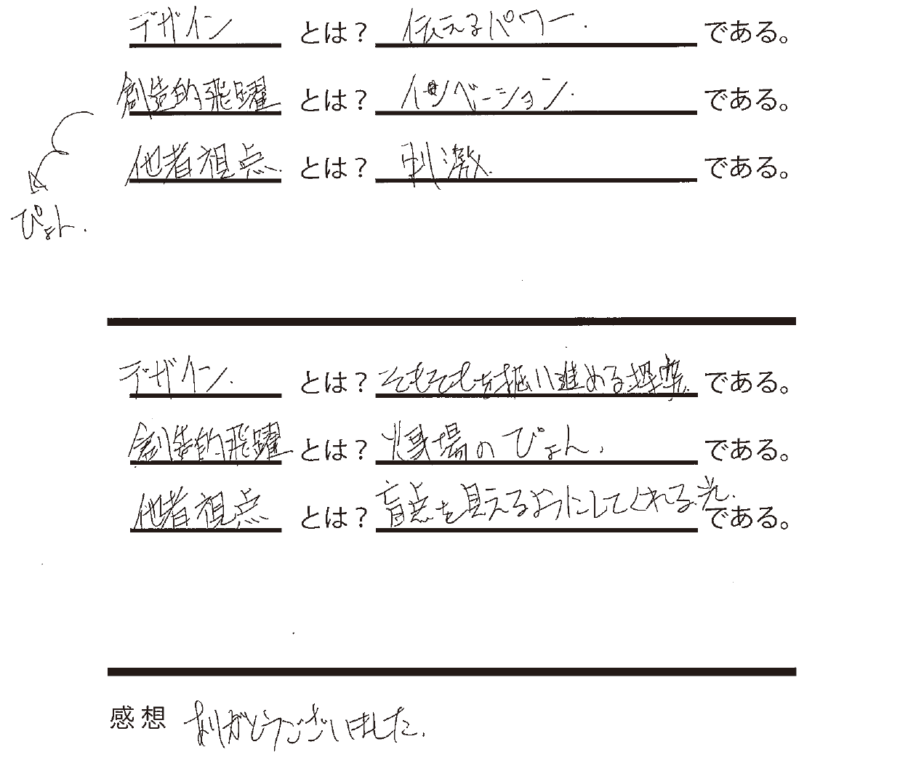 デザイン とは? 伝えるパワー. である。
創造的飛躍 とは? イノベーション. である。
他者視点. とは? 刺激. である。
ぴょん.
デザイン. とは? そもそもを掘り進める探究. である。
創造的飛躍 とは? 火事場のぴょん. である。
他者視点 とは? 盲点を見えるようにしてくれる光. である。
感想 ありがとうございました.